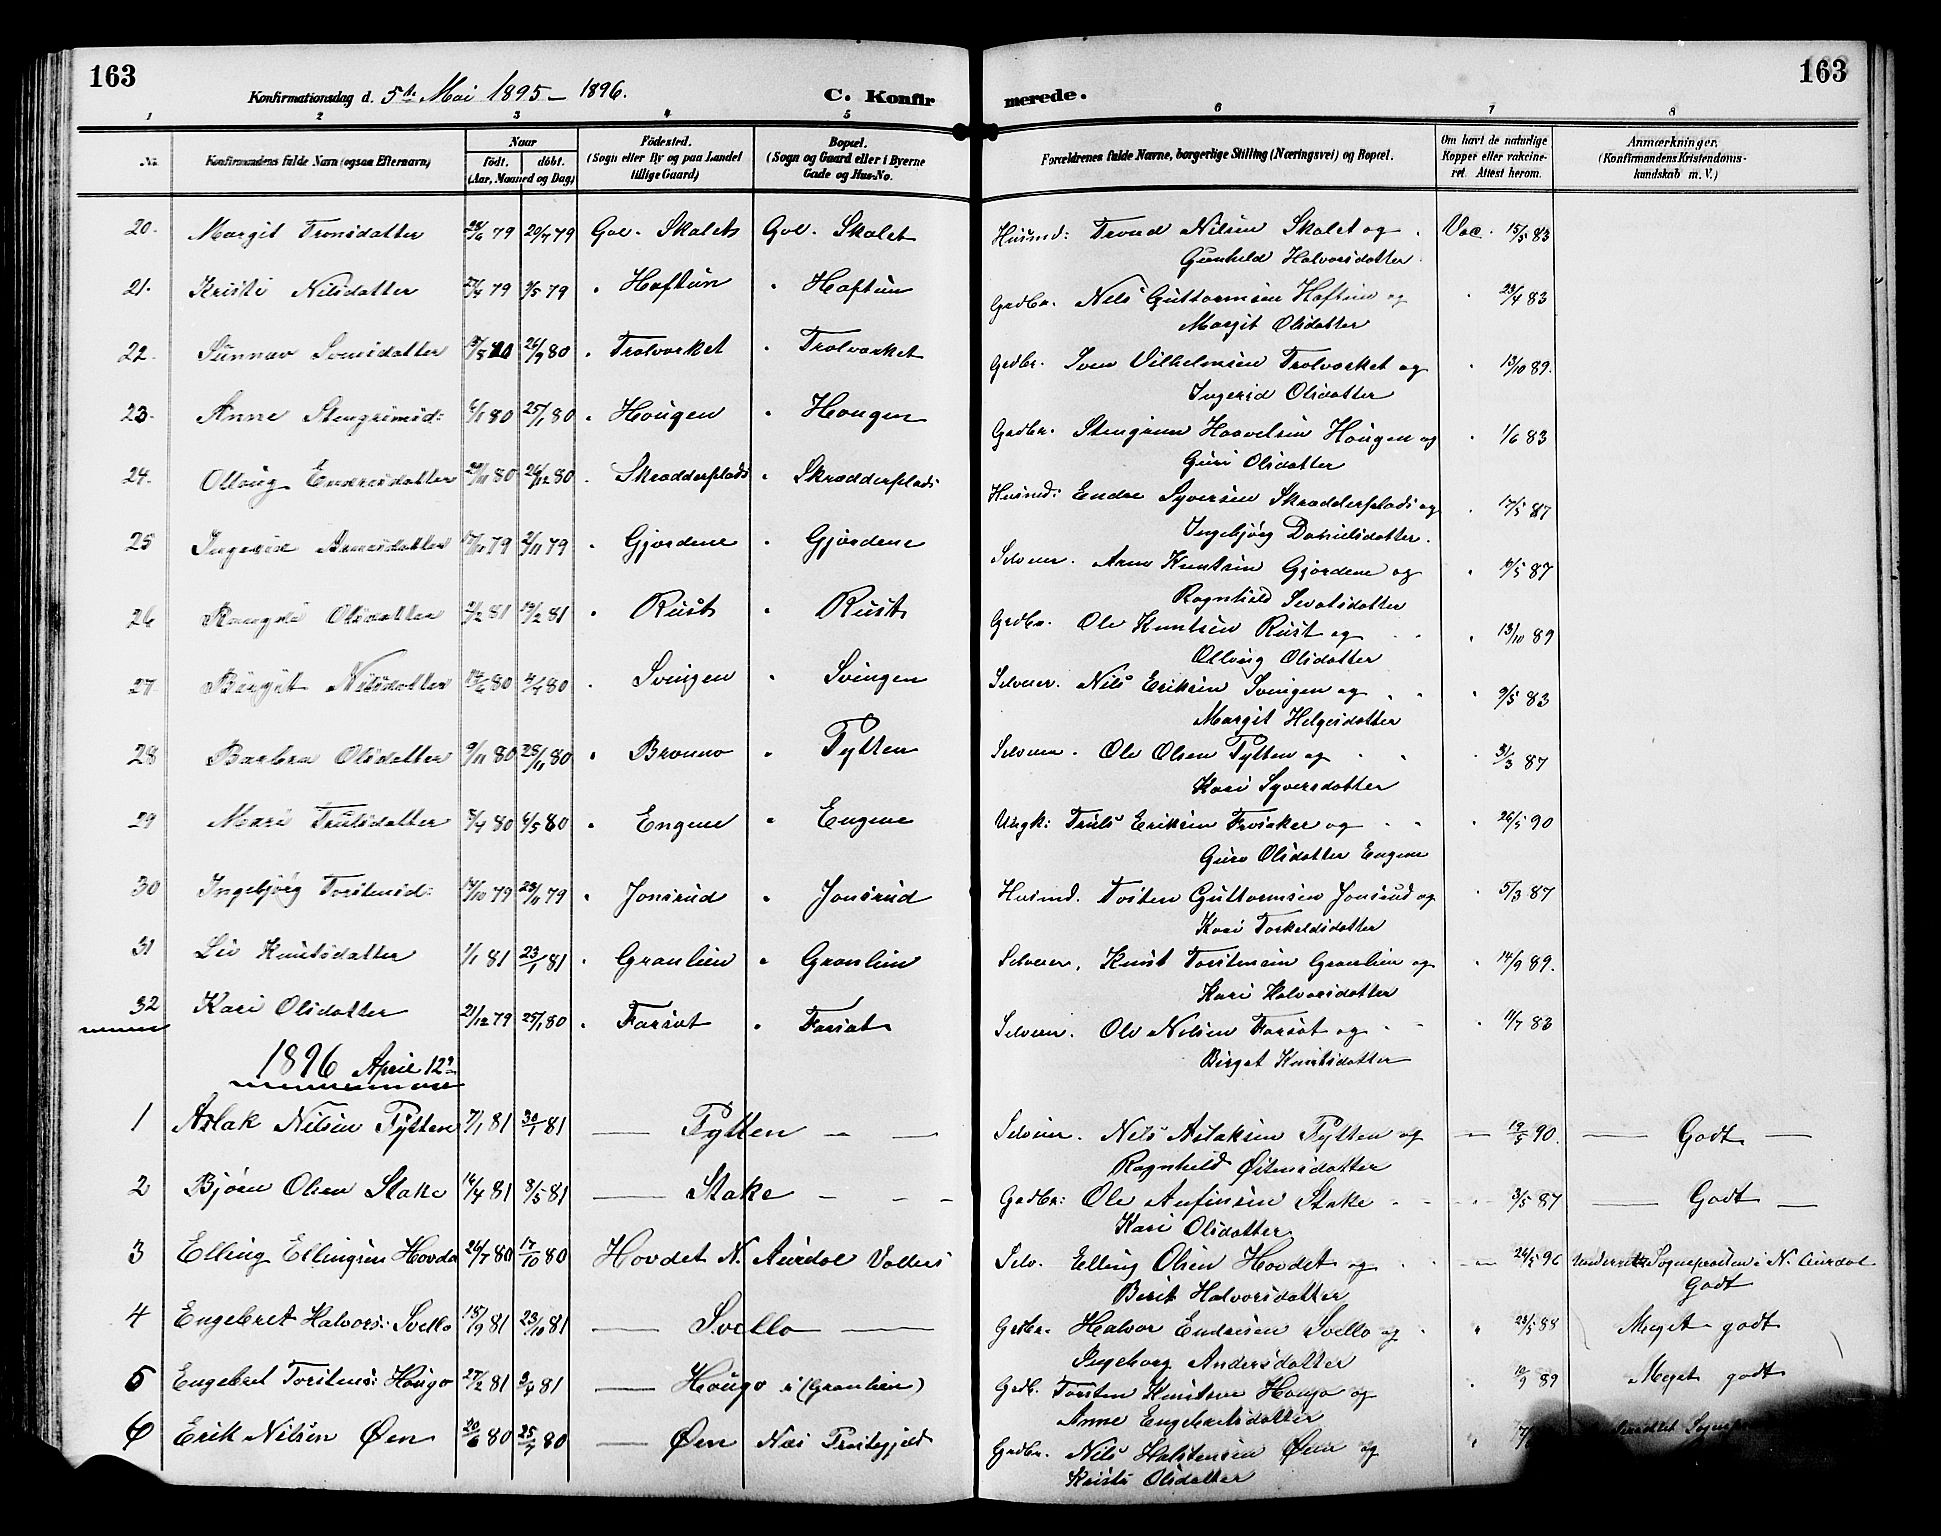 163
Konfirmationsdag d. 5te Mai 1895 - 1896.
C. Konfir
merede.
163
1 2 3 4 5 6 7 8
No.
Konfirmandens fulde Navn (ogsaa Efternavn)
Naar
födt. döbt.
(Aar, Maaned og Dag)
Födested.
(Sogn eller By og paa Landet
tillige Gaard)
Bopæl.
(Sogn og Gaard eller i Byerne
Gade og Hus-No.
Forældrenes fulde Navne, borgerlige Stilling (Næringsvei) og Bopæl.
Om havt de naturlige
Kopper eller vakcine-
ret. Attest herom.
Anmærkninger.
(Konfirmandens Kristendoms-
kundskab m. V.)
20. Margit Tronsdatter 28/6 79 20/7 79 Gol. Skalet Gol. Skalet Husmd: Trond Nilsen Skalet og Vac. 15/5 83
Gunhild Halvorsdatter
21. Kristi Nilsdatter 27/4 79 3/5 79 " Haftun " Haftun Grdbr. Nils Guttormsen Haftun og " 23/4 83
Margit Olsdatter
22. Sunnev Svensdatter 26/9 80 " Trolvasket " Trolvasket Grdbr. Sven Vilhelmsen Trolvasket og " 13/10 89.
Ingerid Olsdatter
23. Anne Stengrimsd: 6/1 80 25/1 80 " Hougen " Hougen Grdbr. Stengrim Haavelsen Hougen og " 1/6 83
Guri Olsdatter
24. Ollaug Endresdatter 29/11 80 26/12 80 " Skradderplads " Skradderplads Husmd: Endre Syversen Skradderplads og " 17/5 87
Ingebjørg Danielsdatter.
25 Ingerid Arnesdatter 17/10 79 2/11 79 " Gjordene " Gjordene Selveier. Arne Knutsen Gjordene og " 87
Ragnhild Sevatsdatter
26 Rangdi Olsdatter 2/2 81 13/2 81 " Rust " Rust Grdbr. Ole Knutsen Rust og " 13/10 89
Ollaug Olsdatter
27 Birgit Nilsdatter 80 4/7 80 " Svingen " Svingen Selveier. Nils Eriksen Svingen og " 9/5 83
Margit Helgesdatter
28 Barbra Olsdatter 9/11 80 28/11 80 " Brenno " Tytten Selveier. Ole Olsen Tytten og " 31/3 87
Kari Syversdatter
29 Mari Trulsdatter 8/4 80 6/5 80 " Engene " Engene Ungk: Truls Eriksen Frøsaker og " 26/5 90
Guro Olsdatter Engene
30 Ingebjørg Torstensd: 17/10 79 23/11 79 " Jonsrud " Jonsrud Husmd. Tosten Guttormsen Jonsrud og " 5/3 87
Kari Torkeldsdatter
31 Liv Knutsdatter 1/1 81 23/1 81 " Granlien " Granlien Selveier. Knut Torstensen Granlien og " 14/9 89.
Kari Halvorsdatter
32 Kari Olsdatter 21/12 79 25/1 80 " Farsot " Farsot Selveier. Ole Nilsen Farsot og " 11/7 83
Birget Knutsdatter
1896 April 12te
1 Aslak Nilsen Tytten 7/1 81 30/1 81 — Tytten — — Selveier. Nils Aslaksen Tytten og — 19/5 90. — Godt —
Ragnhild Østensdatter
2 Bjørn Olsen Stake 16/4 81 8/5 81 — Stake - - - Grdbr: Ole Anfinsen Stake 3/5 87 — Godt —
Kari Olsdatter
3 Elling Ellingsen Hovda 26/7 80 17/10 80 Hovdet N. Aurdal Valders Selv. Elling Olsen Hovdet og — 26/3 96 Sognepresten i N. Aurdal
Godt
Berit Halvorsdatter
4 Engebret Halvors: Svello 18/9 81 23/10 81 — Svello — Grdbr. Halvor Endresen Svello og " 23/5 88 Meget godt
Ingeborg Andersdatter
5 Engebret Torstens: Hougo 27/2 81 3/4 81 — Hougo i (Granlien) Grdb. Torsten Knutsen Hougo og " 10/9 89 Meget godt
Anne Engebretsdatter
6 Erik Nilsen Øen 20/6 80 25/7 80 — Øen Næs Prestegjeld Grdbr. Nils Halstensen Øen og "
Kristi Olsdatter